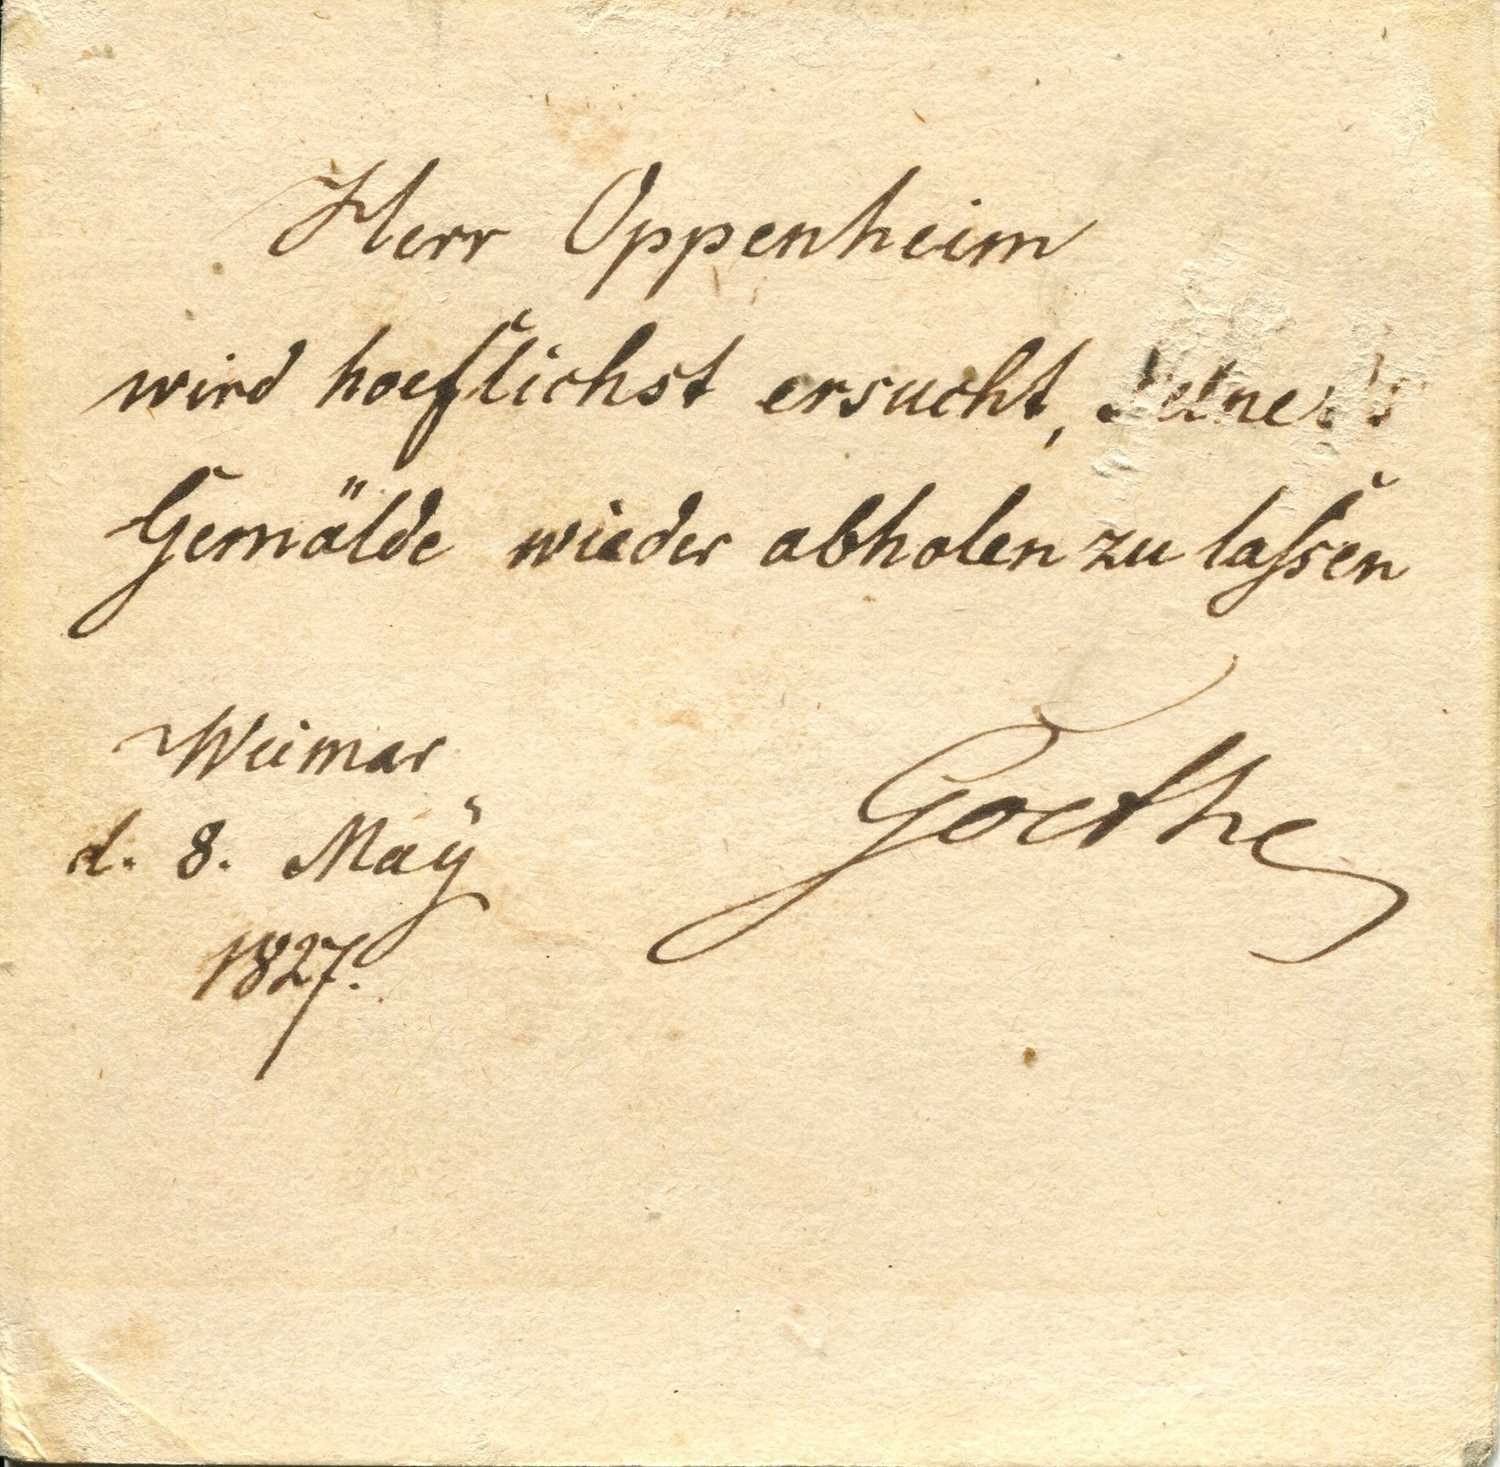 Herr Oppenheim
wird hoeflichst ersucht,
Gemälde wieder abholen zu laſsen
Weimar
d. 8. Maÿ
1827.
Goethe